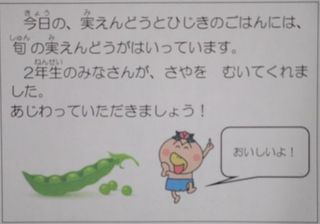 今日の、実えんどうとひじきのごはんには、
旬の実えんどうがはいっています。
2年生のみなさんが、さやを　むいてくれま
した。
あじわっていただきましょう！
おいしいよ！